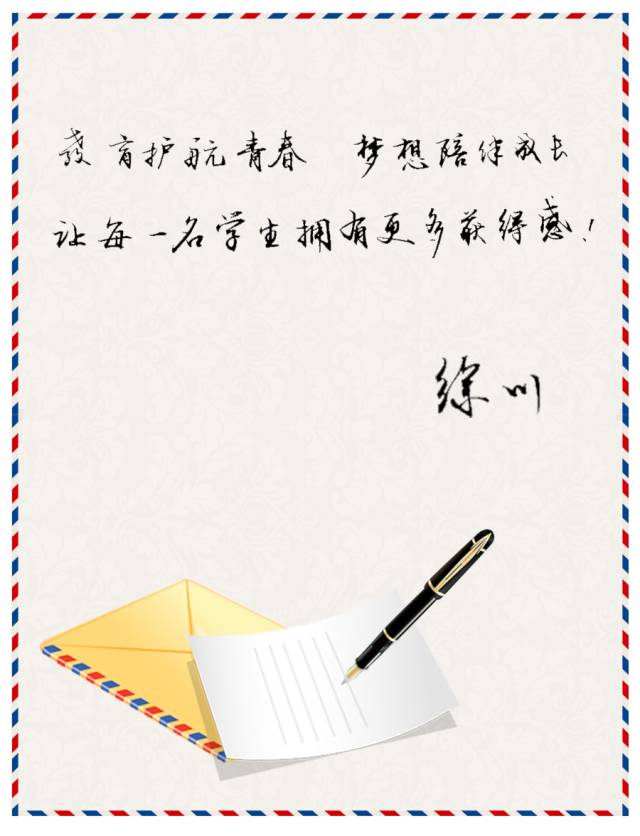 教育护航青春 梦想陪伴成长
让每一名学生拥有更多获得感!
徐川